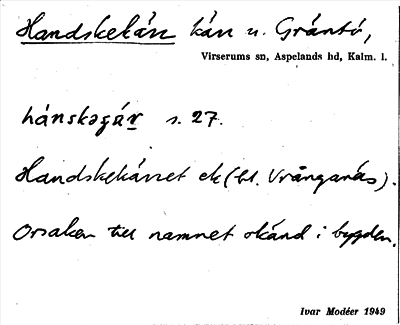 Handskekärr kärr u. Gräntö,
Virserums sn, Aspelands hd, Kalm. l.
hánskəçä́r s. 27.
Handskekärret ek (bl. Vrånganäs).
Orsaken till namnet okänd i bygden.
Ivar Modéer 1949